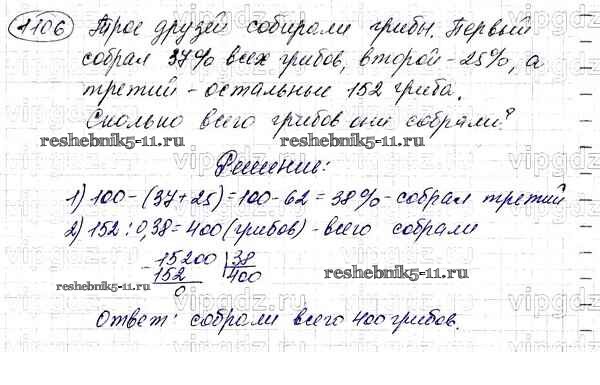 1106 Трое друзей собирали грибы. Первый
собрал 37% всех грибов, второй - 25%, а
третий - остальные 152 гриба.
Сколько всего грибов они собрали?
reshebnik5-11.ru reshebnik5-11.ru
Решение:
1) 100 - (37 + 25) = 100 - 62 = 38% - собрал третий
2) 152 : 0,38 = 400 (грибов) - всего собрали
- 15200 | 38
152 400
reshebnik5-11.ru reshebnik5-11.ru
0
Ответ: собрали всего 400 грибов.
vipgdz.ru